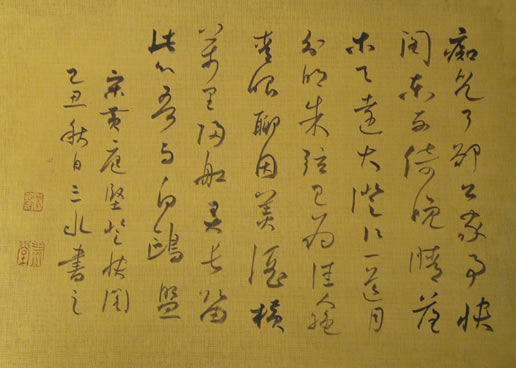 痴兒了卻公家事快
閣東西倚晚晴落
木天遠大澄江一道月
分明朱弦已為佳人絕
青眼聊因美酒橫
萬里歸船弄長笛
此心吾與白鷗盟
宋黃庭堅登快閣
丑秋日三水書之